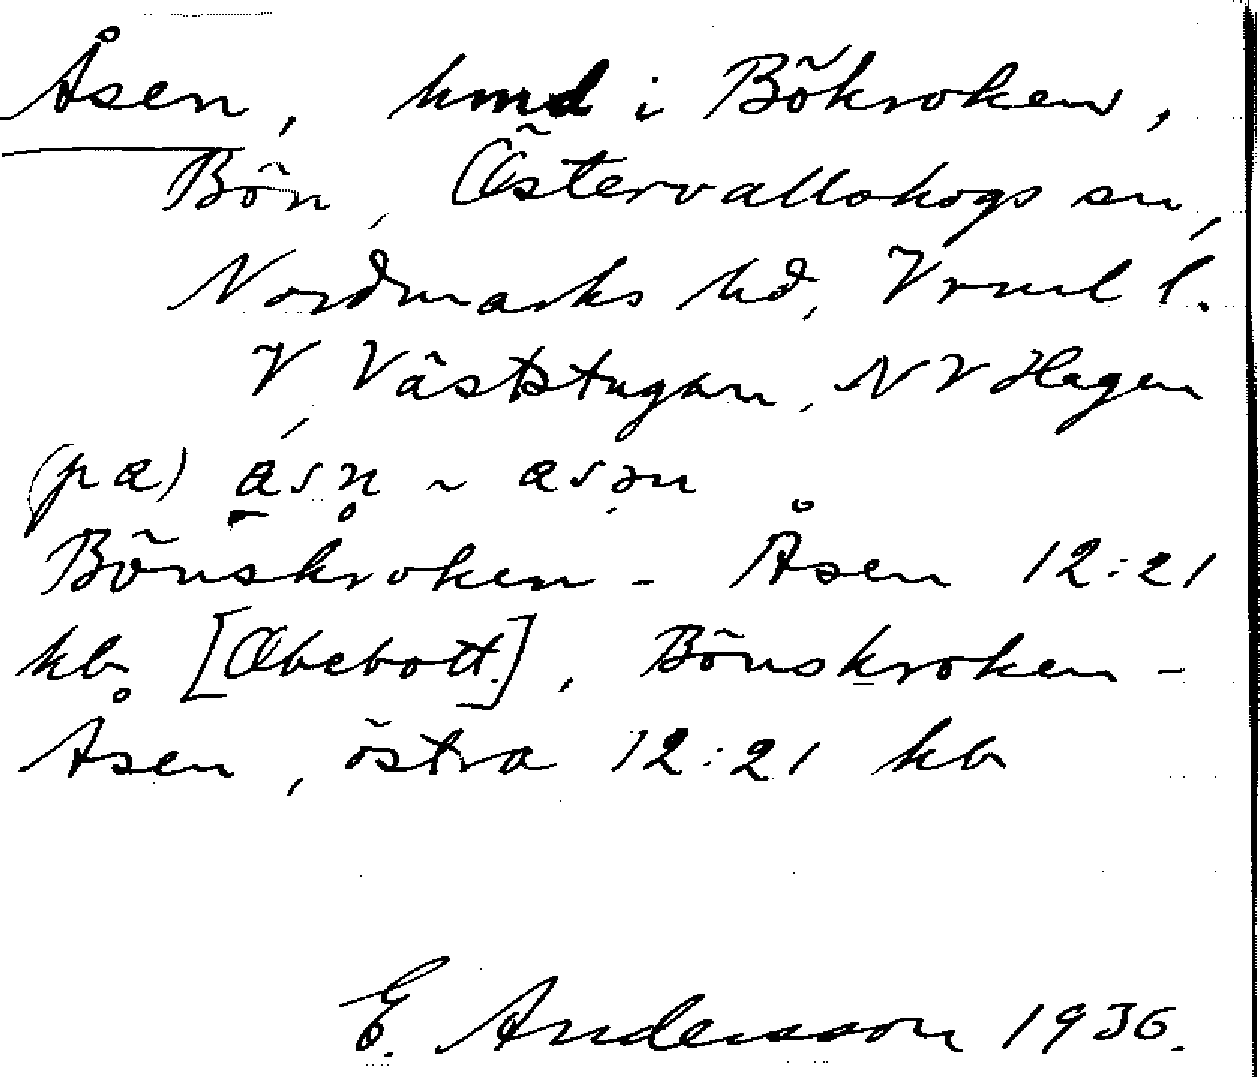 Åsen, hmd i Bökroken,
Bön, Östervallskogs sn,
Nordmarks hd, Vrml l.
V Väststugan, NV Hagen
(på) åsn ~ åsən
Bönskroken - Åsen 12:21
kb [Obebott.], Bönskroken -
Åsen, östra 12:21 kb
E. Andersson 1936.